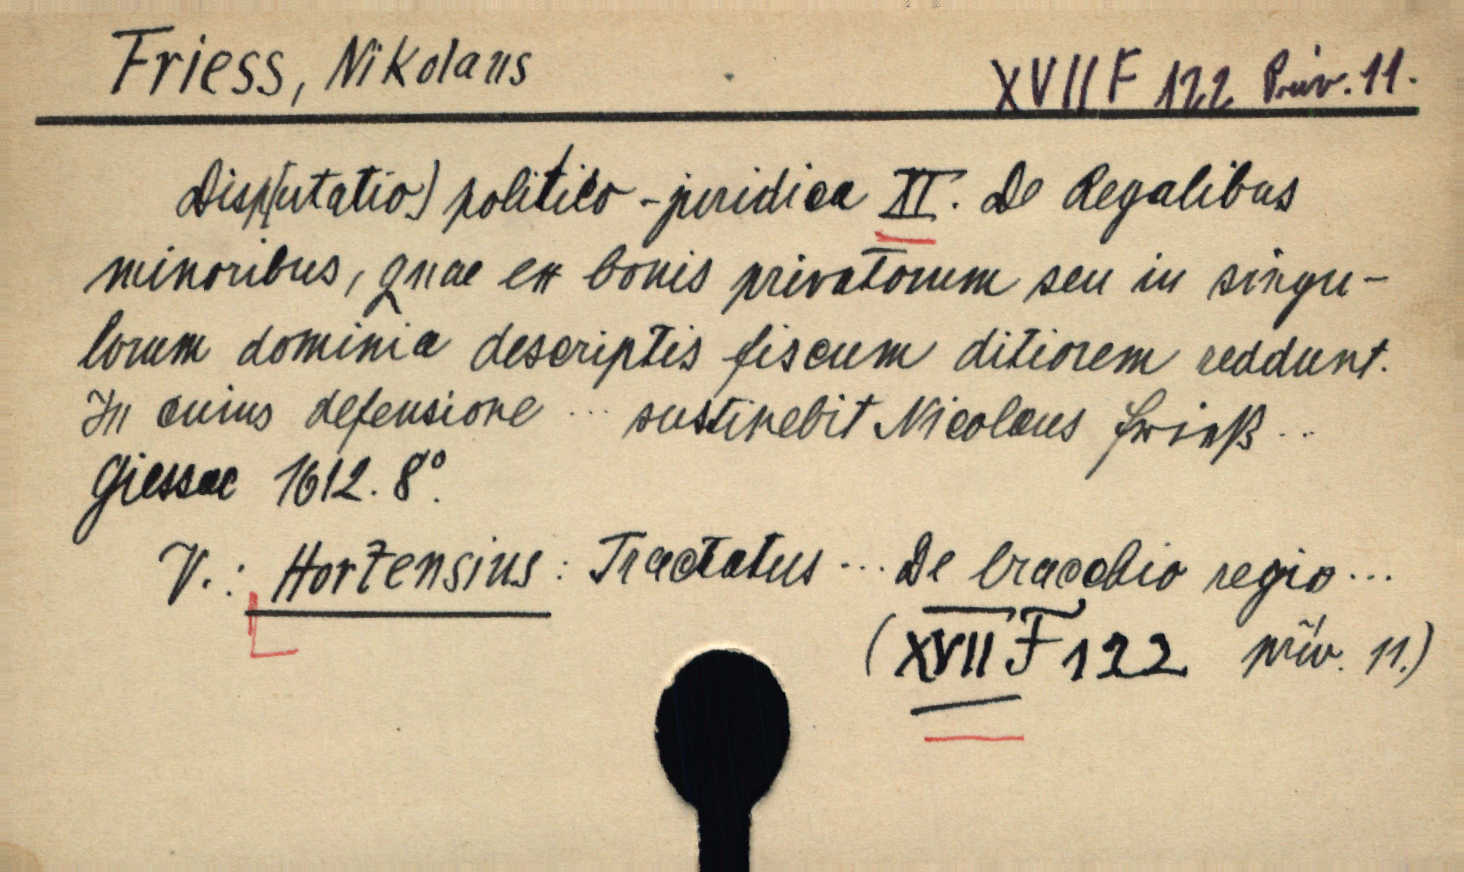 Friess, Nikolaus
XVII F 122 Přív. 11.
Disp(utatio) politico-juridica XI. De Regalibus
minoribus, quae ex bonis privatorum seu in singu-
lorum dominia descriptis fiscum ditiorem reddunt.
In cuius defensione ... sustinebit Nicolaus Frieß ..
Giessae 1612. 8°.
V.: Hortensius: Tractatus ... De bracchio regio ...
(XVII F 122 přív. 11.)